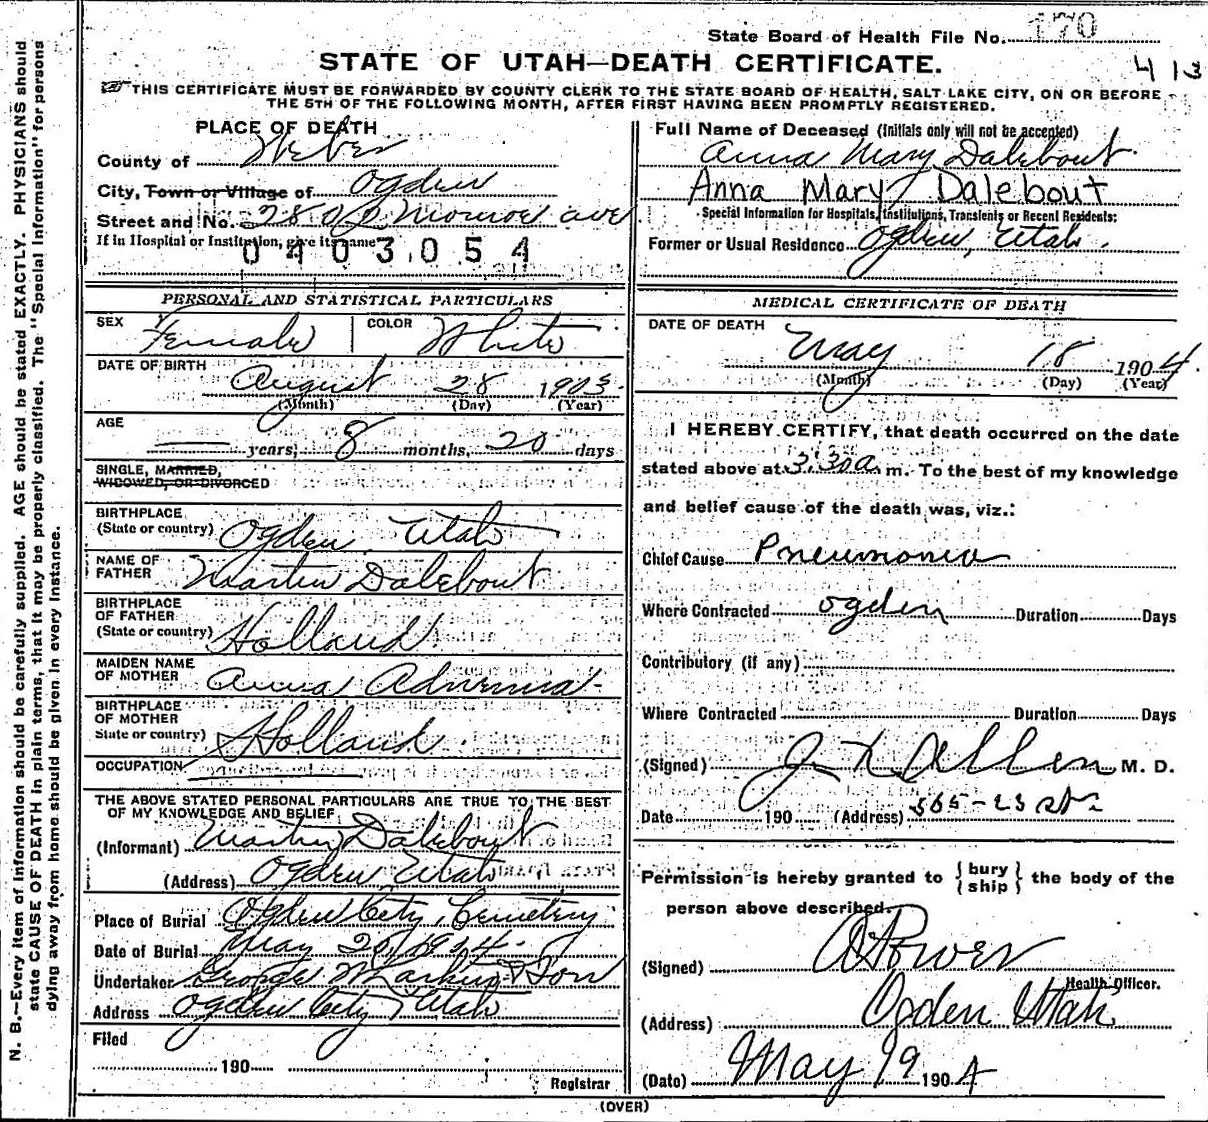 State Board of Health File No. 170
STATE OF UTAH—DEATH CERTIFICATE.
413
THIS CERTIFICATE MUST BE FORWARDED BY COUNTY CLERK TO THE STATE BOARD OF HEALTH, SALT LAKE CITY, ON OR BEFORE
THE 5TH OF THE FOLLOWING MONTH, AFTER FIRST HAVING BEEN PROMPTLY REGISTERED.
PLACE OF DEATH
County of Weber
City, Town or Village of Ogden
Street and No. 2800 Monroe ave
If in Hospital or Institution, give its name
0403054
Full Name of Deceased (Initials only will not be accepted)
Anna Mary Dalebout
Anna Mary Dalebout
Special Information for Hospitals, Institutions, Transients or Recent Residents:
Former or Usual Residence Ogden, Utah.
PERSONAL AND STATISTICAL PARTICULARS
SEX Female COLOR White
DATE OF BIRTH August 28 1903
(Month) (Day) (Year)
AGE
years, 8 months, 20 days
SINGLE, MARRIED,
WIDOWED, OR DIVORCED
BIRTHPLACE
(State or country) Ogden Utah
NAME OF
FATHER Martin Dalebout
BIRTHPLACE
OF FATHER
(State or country) Holland
MAIDEN NAME
OF MOTHER Anna
BIRTHPLACE
OF MOTHER
State or country) Holland
OCCUPATION
THE ABOVE STATED PERSONAL PARTICULARS ARE TRUE TO THE BEST
OF MY KNOWLEDGE AND BELIEF
(Informant) Martin Dalebout
(Address) Ogden Utah
Place of Burial Ogden City Cemetery
Date of Burial May 20, 1904
Undertaker George W Larkin & Son
Address Ogden City Utah
Filed
190
Registrar
MEDICAL CERTIFICATE OF DEATH
DATE OF DEATH
May 18 1904
(Month) (Day) (Year)
I HEREBY CERTIFY, that death occurred on the date
stated above at 3:30 a m. To the best of my knowledge
and belief cause of the death was, viz.:
Chief Cause Pneumonia
Where Contracted Ogden Duration Days
Contributory (if any)
Where Contracted Duration Days
(Signed) Allen M. D.
Date 190 (Address)
Permission is hereby granted to {bury
ship} the body of the
person above described.
(Signed) Power
Health Officer.
(Address) Ogden Utah
(Date) May 19 1904
(OVER)
N. B.—Every item of information should be carefully supplied. AGE should be stated EXACTLY. PHYSICIANS should
state CAUSE OF DEATH in plain terms, that it may be properly classified. The "Special Information" for persons
dying away from home should be given in every instance.